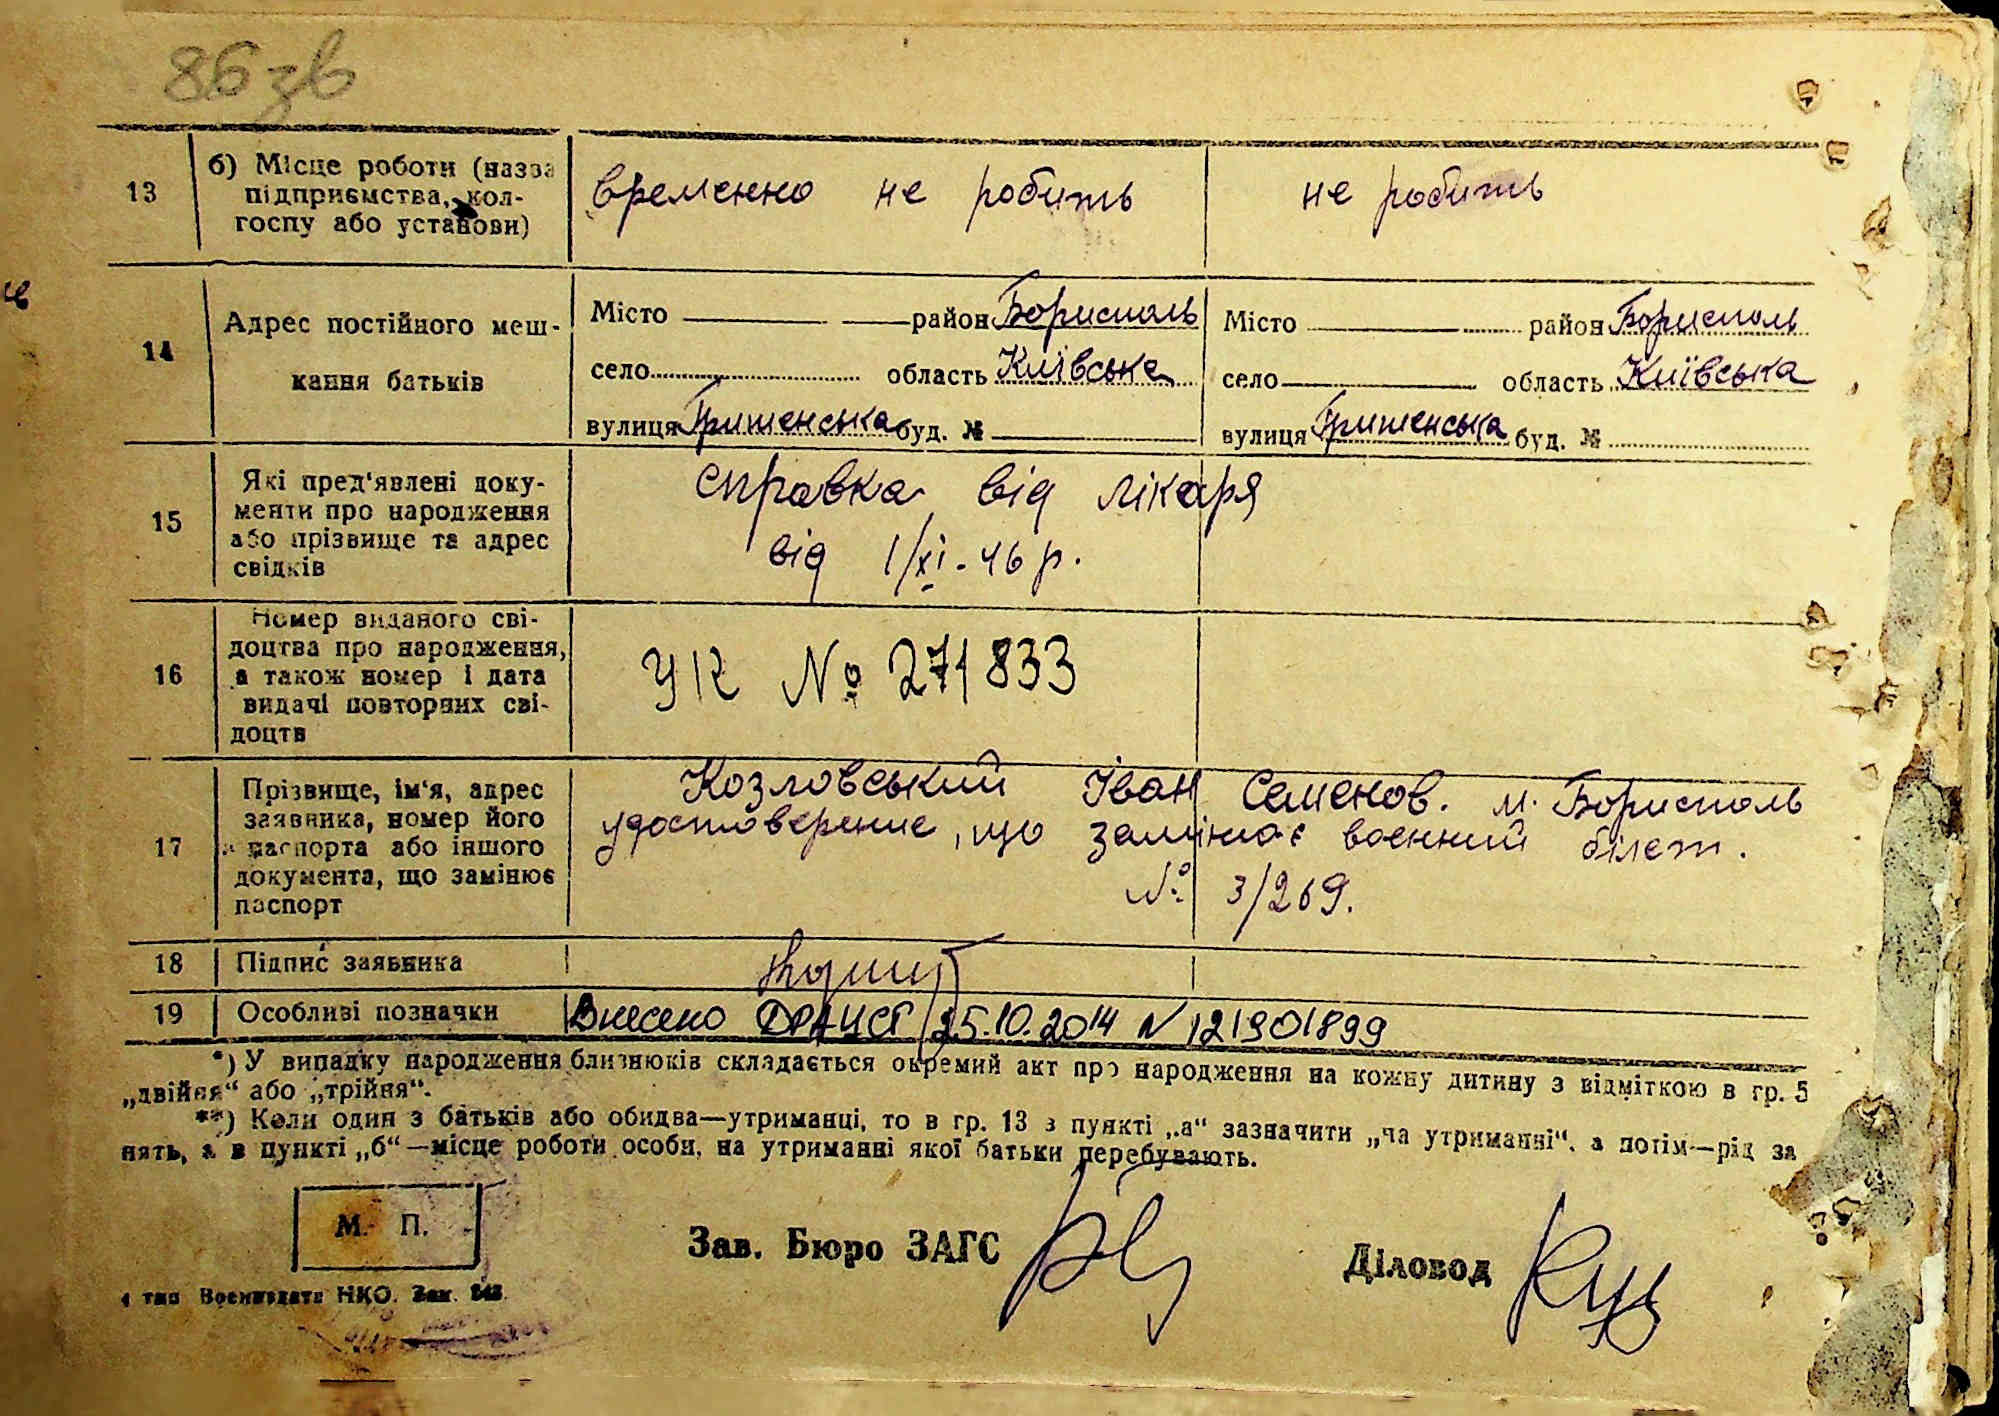 86 зв
13 б) Місце роботи (назва підприємства, колгоспу або установи) временно не робить не робить
14 Адрес постійного мешкання батьків
Місто район Борисполь Місто район Борисполь
село область Київська село область Київська
вулиця буд. № вулиця буд. №
15 Які пред'явлені документи про народження або прізвище та адрес свідків
справка від лікаря
від 1/XI-46 р.
16 Номер виданого свідоцтва про народження, а також номер і дата видачі повторних свідоцтв
УК № 271833
17 Прізвище, ім'я, адрес заявника, номер його паспорта або іншого документа, що замінює паспорт
Козловський Іван Семенов. м. Борисполь
удостоверение, що замінює воєнний білет.
№ 3/269.
18 Підпис заявника
19 Особливі позначки Внесено ДРАЦСГ 25.10.2014 N 121901899
*) У випадку народження близнюків складається окремий акт про народження на кожну дитину з відміткою в гр. 5
„двійня“ або „трійня“.
**) Коли один з батьків або обидва—утриманці, то в гр. 13 з пункті „а“ зазначити „на утриманні“, а потім—рід за
нять, а в пункті „б“—місце роботи особи, на утриманні якої батьки перебувають.
М. П.
Зав. Бюро ЗАГС Діловод
4 тип Воениздата НКО. Зак.